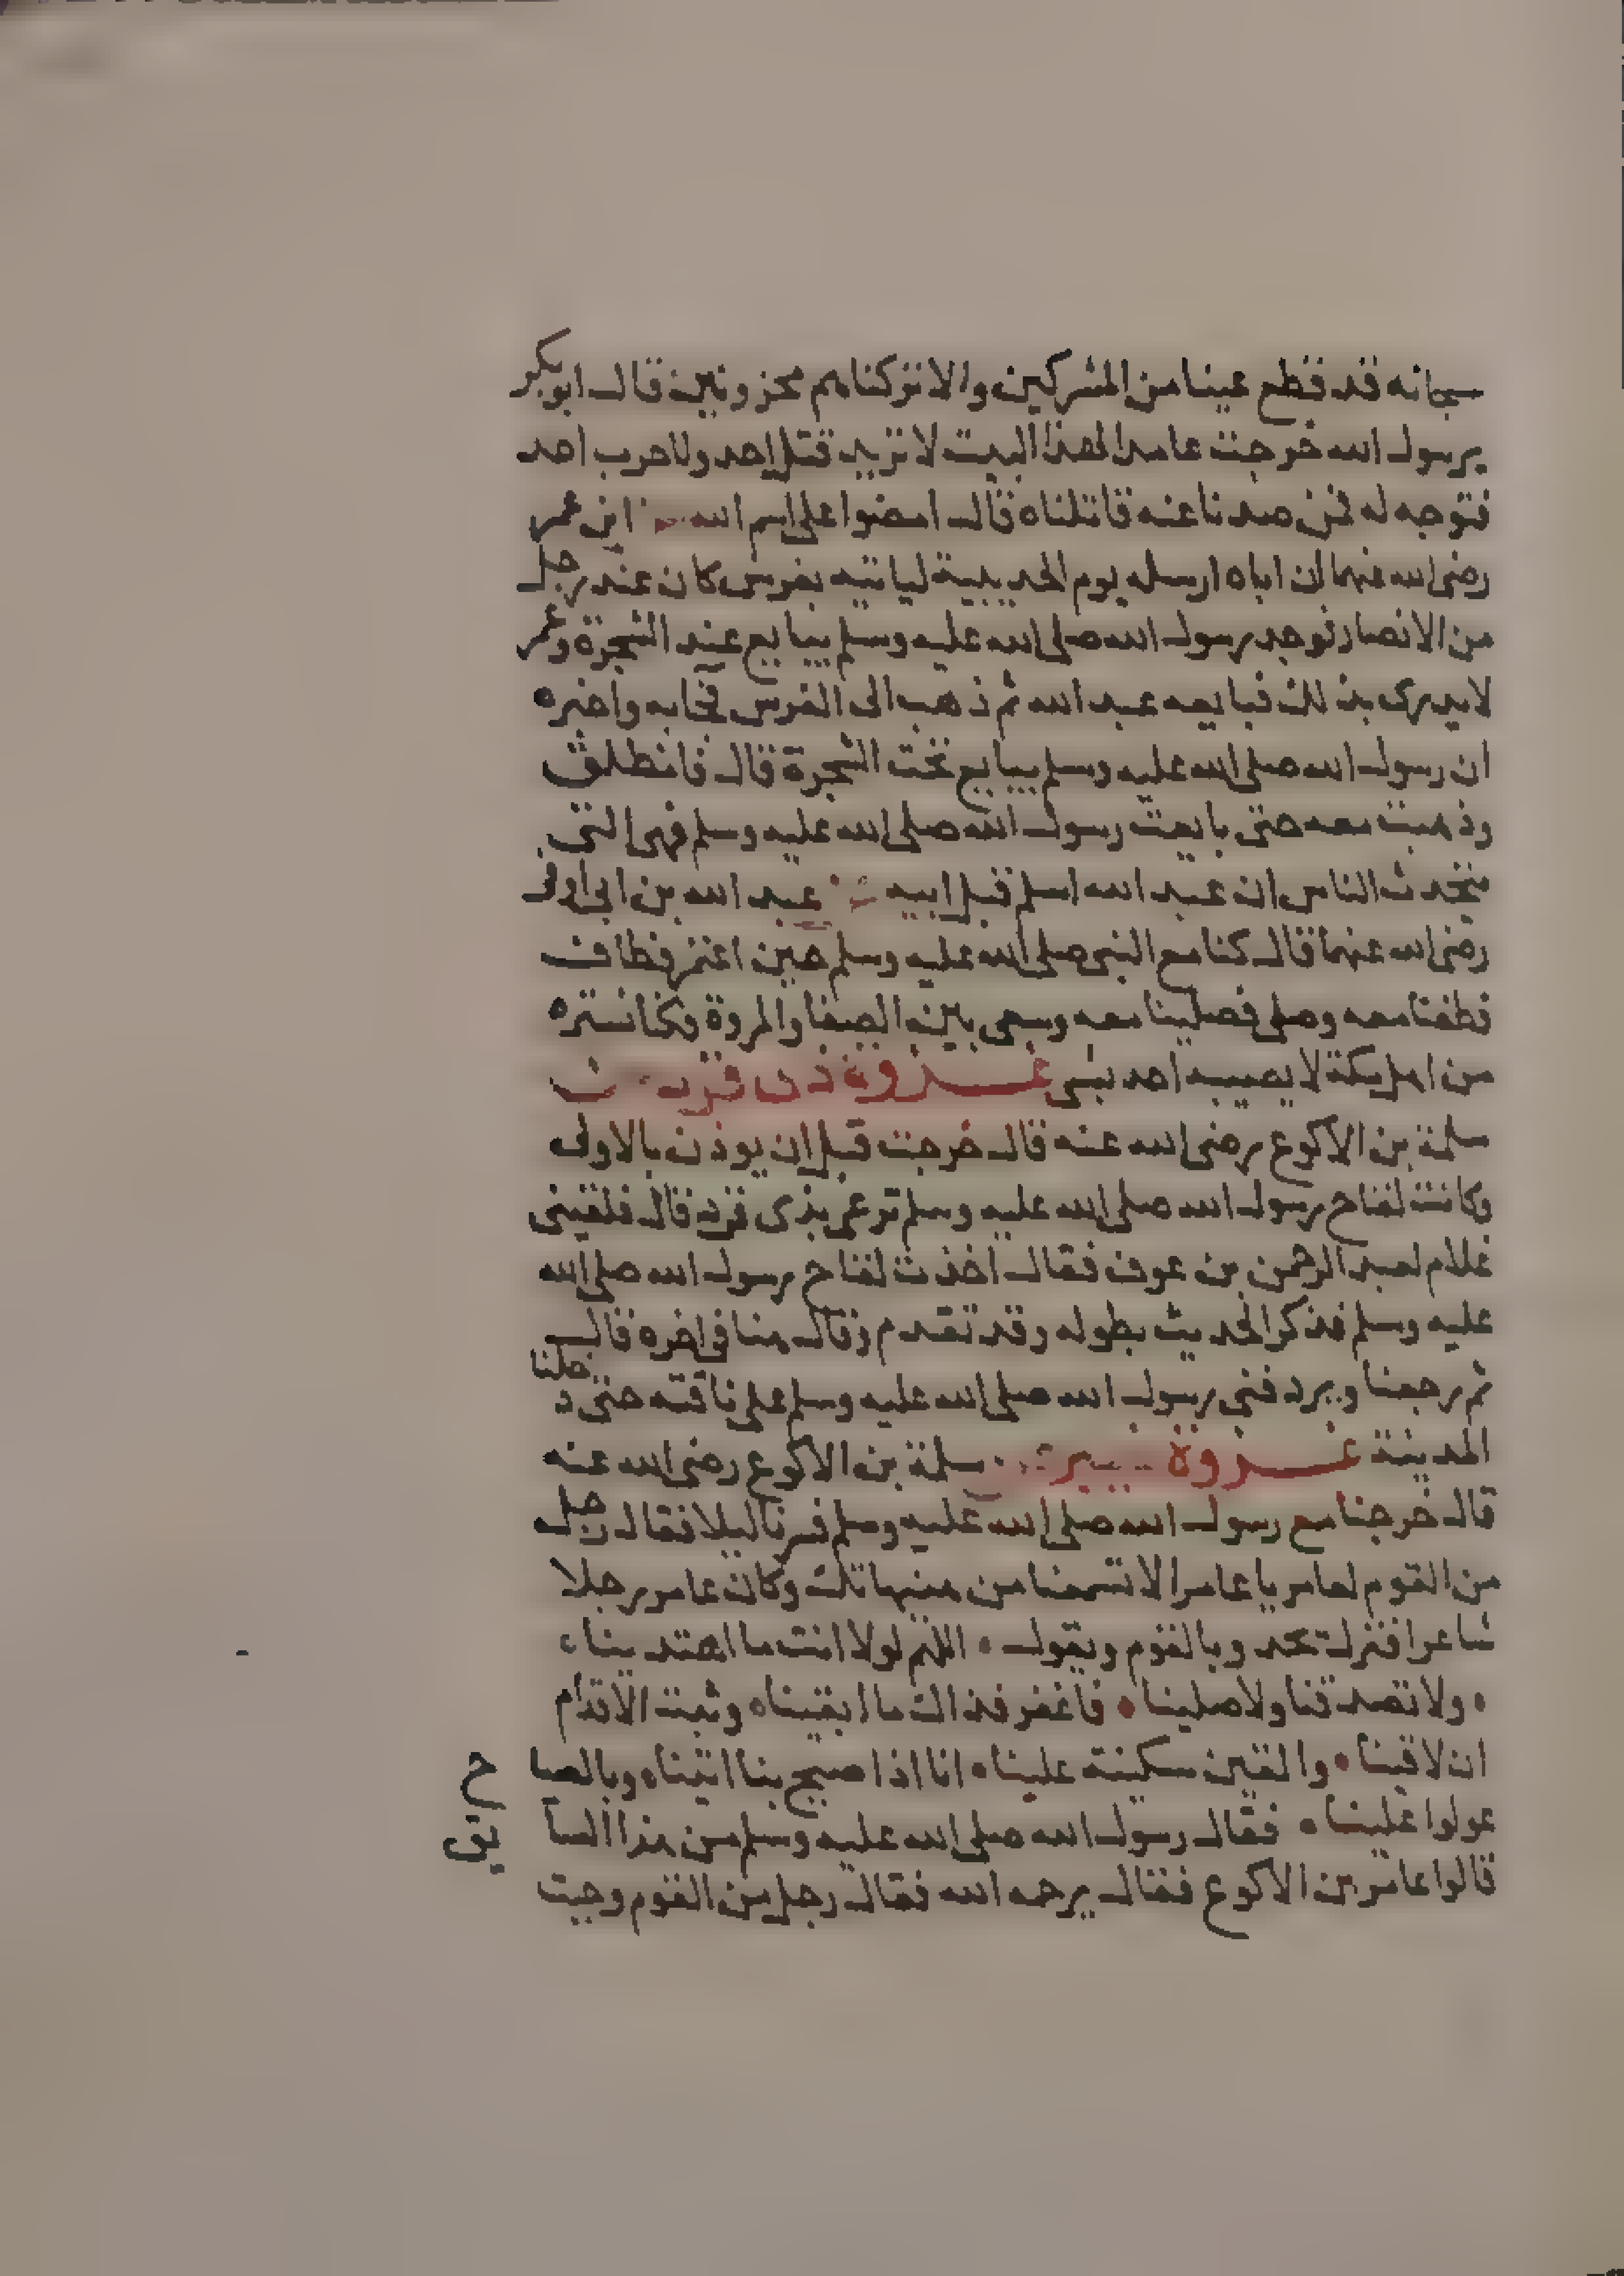 سبحانه قد قطع عينا من المشركين والا تركناهم محزونين قال ابو بكر
يرسول الله خرجت عامدا لهذا البيت لا تريد قتل احد ولا حرب احد
فتوجه له فمن صدنا عنه قاتلناه قال امضوا على اسم الله ابن عمر
رضى الله عنهما ان اباه ارسله يوم الحديبية لياتيه بفرس كان عند رجل
من الانصار فوجد رسول الله صلى الله عليه وسلم يبايع عند الشجرة وعمر
لا يدرى بذلك فبايعه عبد الله ثم ذهب الى الفرس فجا به واخبره
ان رسول الله صلى الله عليه وسلم يبايع تحت الشجرة قال فانطلق
وذهبت معه حتى بايعت رسول الله صلى الله عليه وسلم فهى التى
يتحدث الناس ان عبد الله اسلم قبل ابيه عبد الله بن ابى اوفى
رضى الله عنهما قال كنا مع النبى صلى الله عليه وسلم حين اعتمر فطاف
فطفنا معه وصلى فصلينا معه وسعى بين الصفا والمروة وكنا نستره
من اهل مكة لا يصيبه احد بشى غزوة ذى قرد
سلمة بن الاكوع رضى الله عنه قال خرجت قبل ان يوذن بالاولى
وكانت لقاح رسول الله صلى الله عليه وسلم ترعى بذى قرد قال فلقينى
غلام لعبد الرحمن بن عوف فقال اخذت لقاح رسول الله صلى الله
عليه وسلم فذكر الحديث بطوله وقد تقدم وقال هنا فى اخره قال
ثم رجعنا ويردفنى رسول الله صلى الله عليه وسلم على ناقته حتى دخلنا
المدينة غزوة خيبر سلمة بن الاكوع رضى الله عنه
قال خرجنا مع رسول الله صلى الله عليه وسلم فسرنا ليلا فقال رجل
من القوم لعامر يا عامر الا تسمعنا من هنيهاتك وكان عامر رجلا
شاعرا فنزل يحدو بالقوم ويقول اللهم لولا انت ما اهتدينا
ولا تصدقنا ولا صلينا فاغفر فذا لك ما ابقينا وثبت الاقدام
ان لاقينا والقين سكينة علينا انا اذا صيح بنا اتينا وبالصياح
عولوا علينا فقال رسول الله صلى الله عليه وسلم من هذا السايق
قالوا عامر بن الاكوع فقال يرحمه الله فقال رجل من القوم وجبت